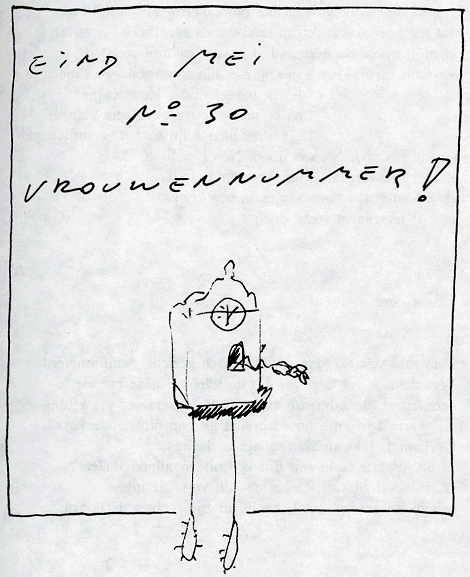 EiND MEi
No 30
VROUWENNUMMER!